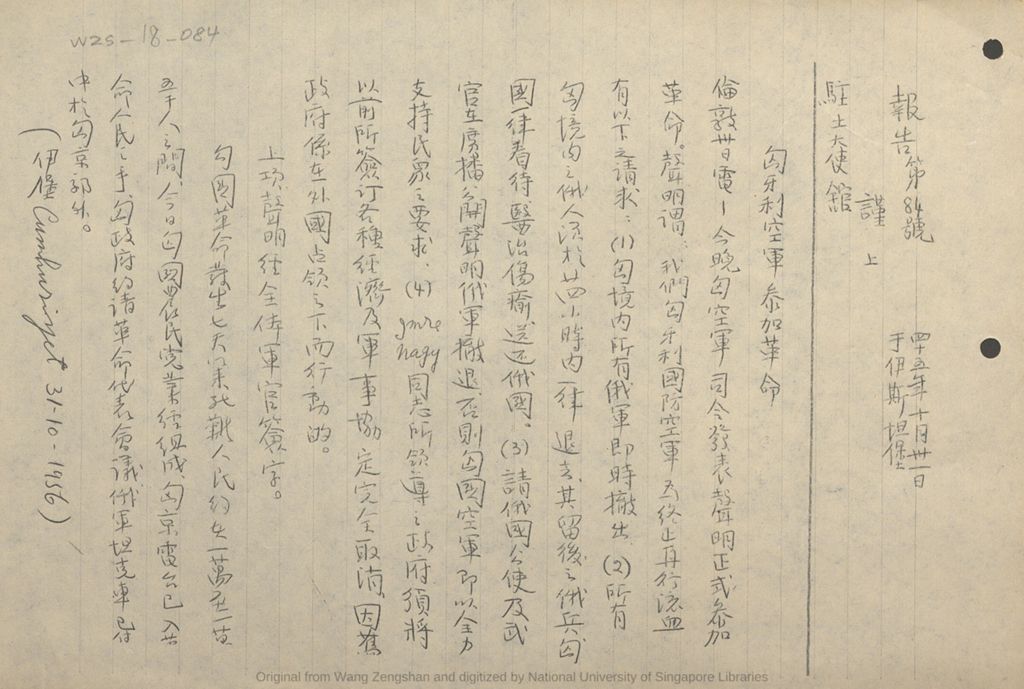 wzs-18-084
報告第84號
四十五年十月卅一日
于伊斯坦堡
謹上
駐土大使館
匈牙利空軍參加革命
倫敦卅日電—今晚匈空軍司令發表聲明正式參加
革命。聲明謂:我們匈牙利國防空軍為終止再行流血
有以下之請求:(1)匈境內所有俄軍即時撤出(2)所有
匈境內之俄人須於廿四小時內一律退去其留後之俄兵匈
國一律看待醫治傷癒送还俄國。(3)請俄國公使及武
官在廣播公開聲明俄軍撤退,否則匈國空軍即以全力
支持民眾之要求,(4)Imre Nagy同志所領導之政府須將
以前所簽订各種經濟及軍事協定完全取消,因舊
政府係在外國占領之下而行動的。
上項聲明經全体軍官簽字。
匈國革命發生七天以來死難人民約在一萬至一萬
五千人之間,今日匈國農民党業經組成,匈京電台已入革
命人民之手,匈政府約请革命代表會議,俄軍坦克車已
集中於匈京郊外。
(伊堡Cumhuriyet 31-10-1956)
Original from Wang Zengshan and digitized by National University of Singapore Libraries